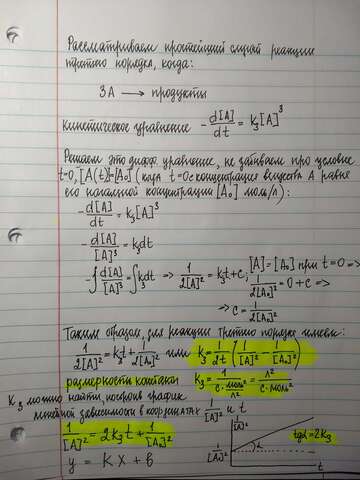 Рассматриваем простейший случай реакции
третьего порядка, когда:
3A → продукты
кинетическое уравнение -d[A]/dt = k₃[A]³
Решаем это дифф. уравнение, не забываем про условие
t=0, [A(t)]=[A₀] (когда t=0с концентрация вещества A равна
его начальной концентрации [A₀] моль/л):
-d[A]/dt = k₃[A]³
-d[A]/[A]³ = k₃dt
-∫d[A]/[A]³ = ∫k₃dt => 1/2[A]² = k₃t+c; [A]=[A₀] при t=0 =>
1/2[A₀]² = 0+c =>
=> c = 1/2[A₀]²
Таким образом, для реакции третьего порядка имеем:
1/2[A]² = k₃t + 1/2[A₀]² или k₃ = 1/2t (1/[A]² - 1/[A₀]²)
размерность константы k₃ = 1/с·моль²/л² = л²/с·моль²
K₃ можно найти, построив график
линейной зависимости в координатах 1/[A]² и t
1/[A]² = 2k₃t + 1/[A₀]²
y = kx + b
1/[A]²
α
tgα=2k₃
1/[A₀]²
t